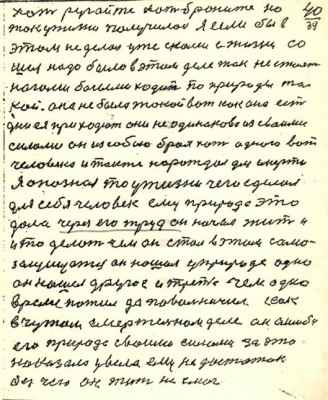 хоть ругайте хоть браните но 40
так у жизни получилось Я если бы в 39
этом не делал уже скоми с жизни со
шел надо было в этом деле так не стоят
ногами босыми ходит по природы та
кой. она не была такой вот как она есть
дни ея приходят они не одинаково из своими
силами он из собою брал хоть одного вот
человека и такти нарождал для смерти
Я опознал то у жизни чего сделал
для себя человек ему природа это
дала через его труд он начал жить и
что делать чем он стал в этом само-
защищатся он нашел у природе одно
он нашел другое и третье чем одно
время пожил да поволничил. Как
в чужом смертельном деле он ошибу
его природа своими силами за это
наказала увела ему не достаток
без чего он жит не смог